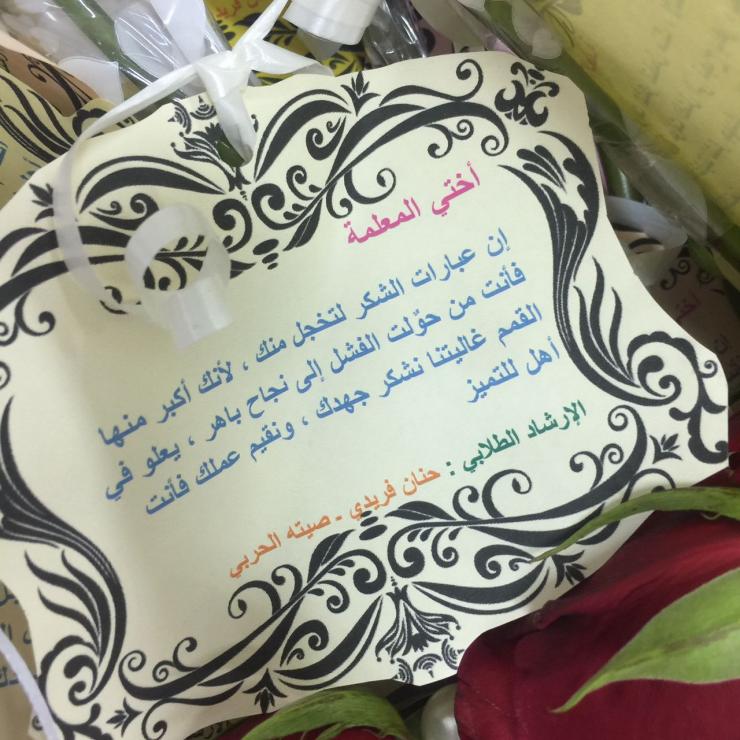 أختي المعلمة
إن عبارات الشكر لتخجل منك ، لأنك أكبر منها
فأنت من حوّلت الفشل إلى نجاح باهر ، يعلو في
القمم غاليتنا نشكر جهدك ، ونقيم عملك فأنت
أهل للتميز
الإرشاد الطلابي : حنان فريدي - صيته الحربي